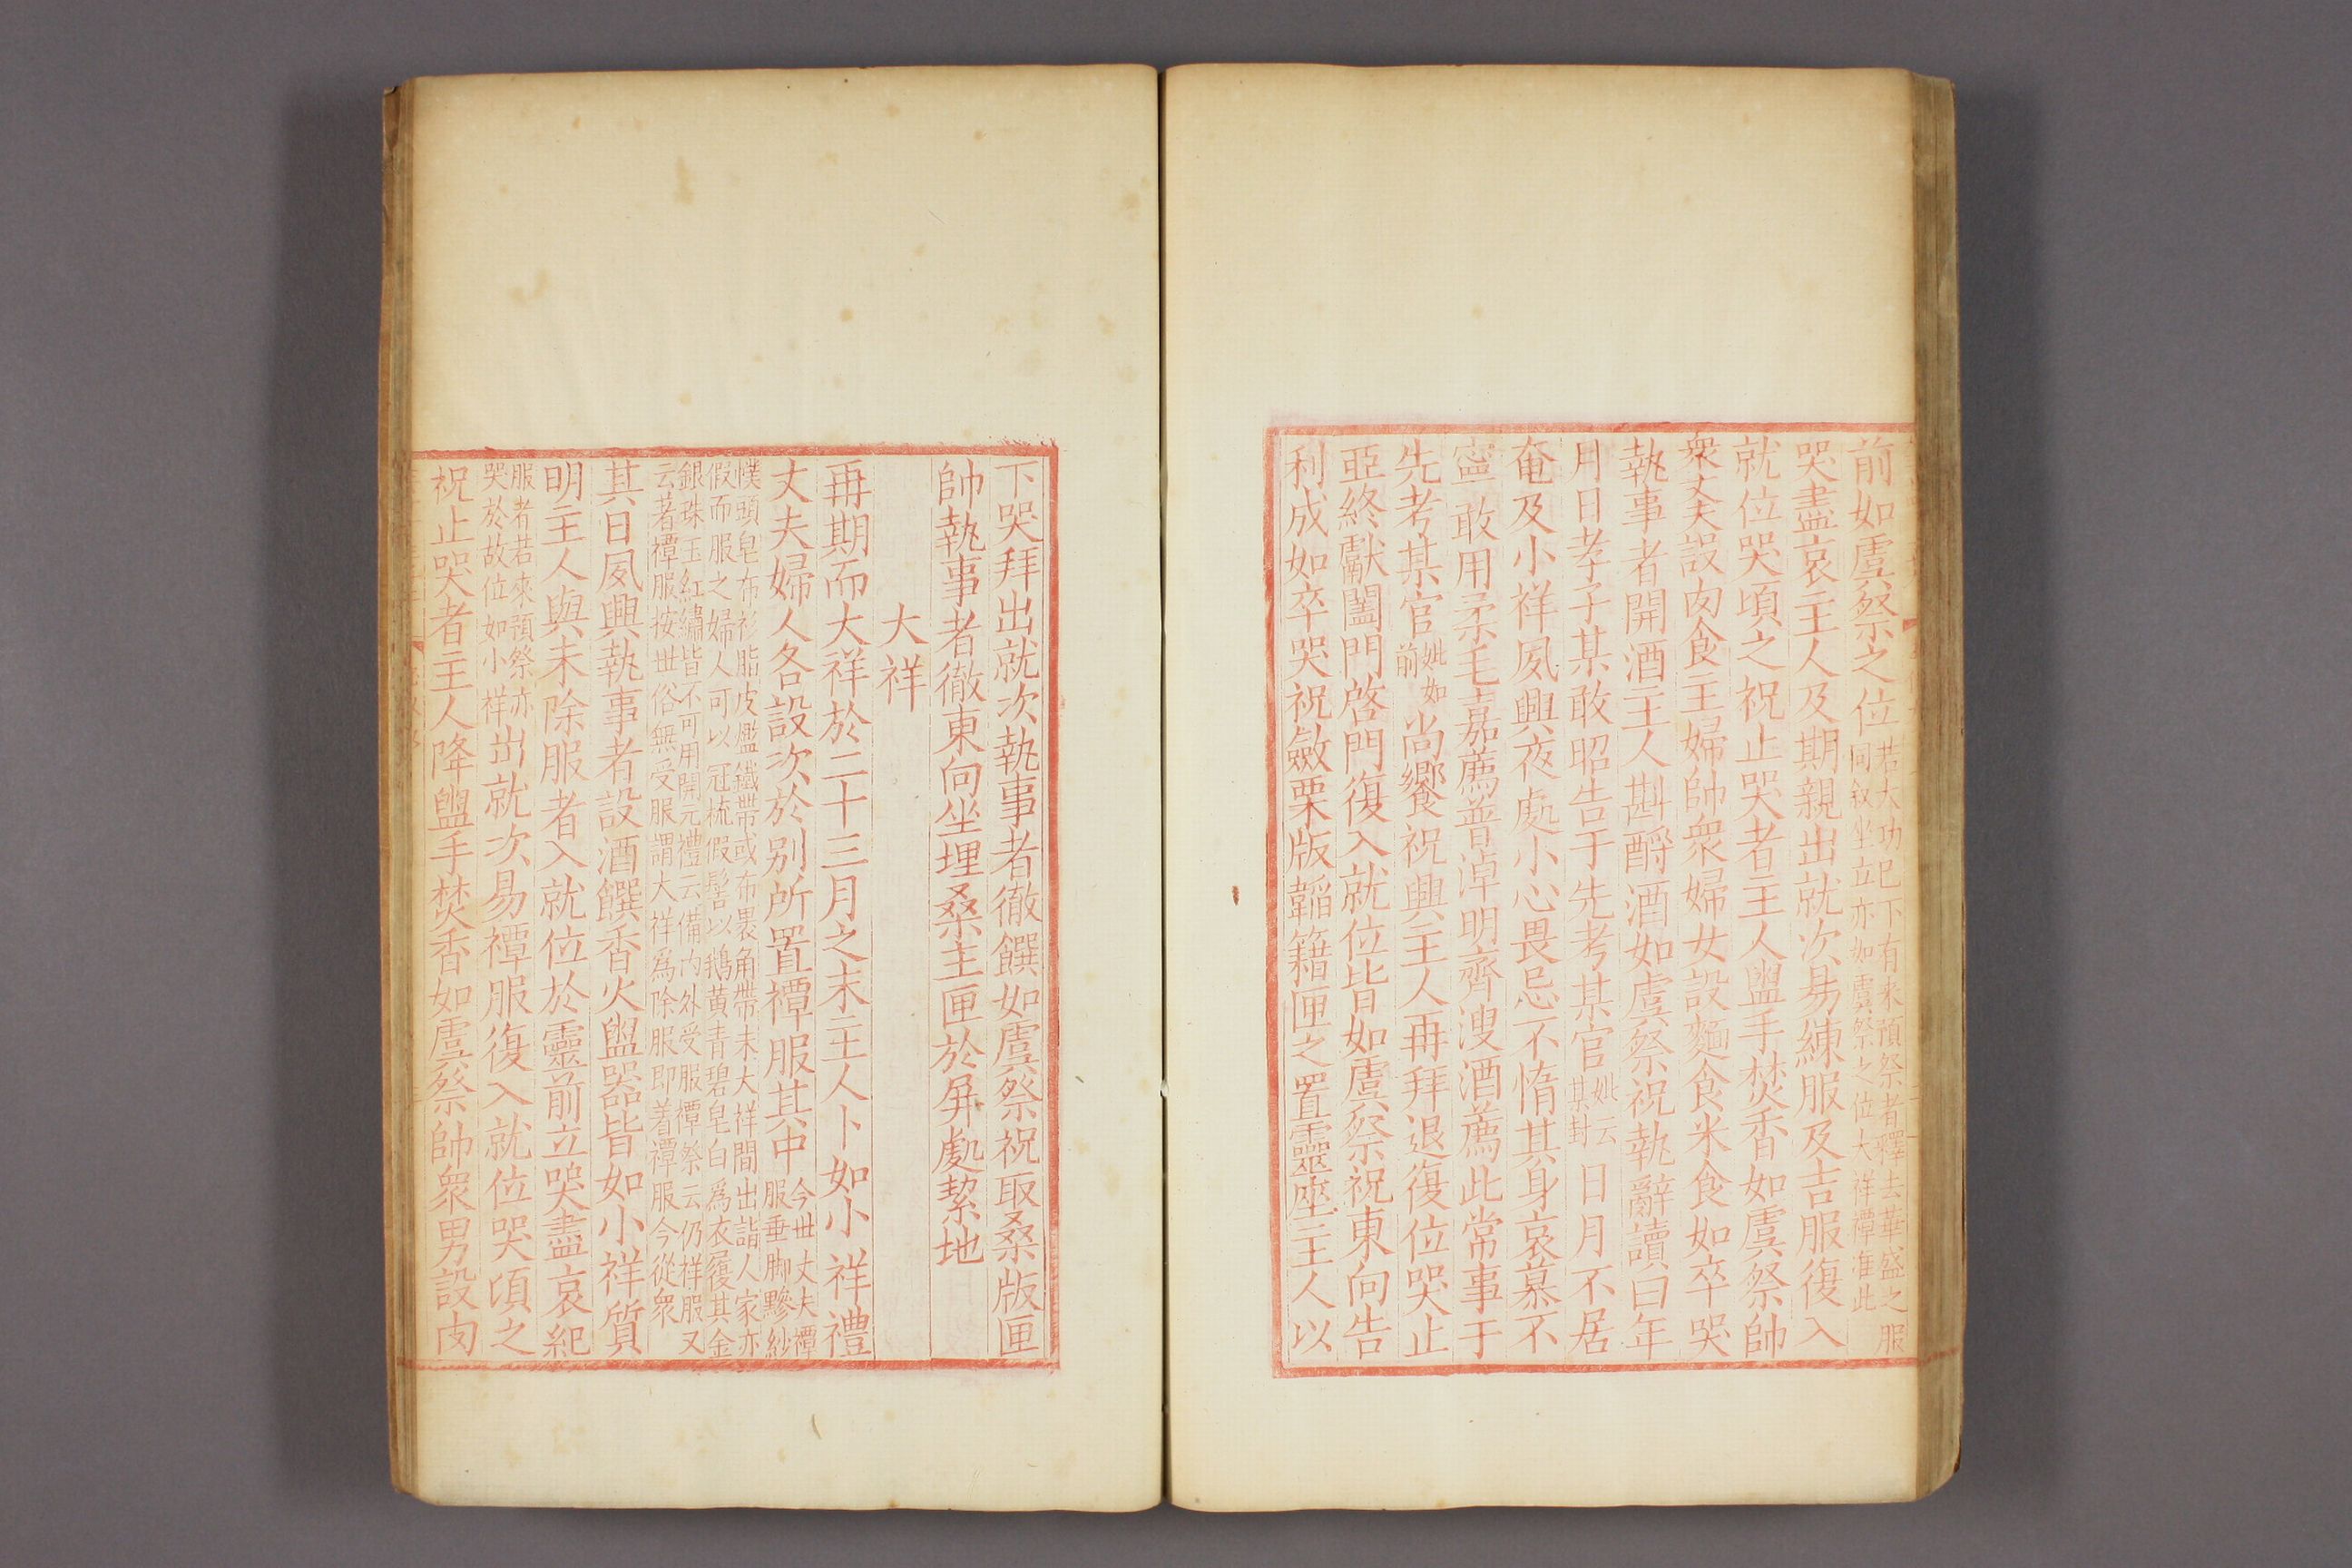 前如虞祭之位若大功已下有来預祭者釋去華盛之服同叙坐立亦如虞祭之位大祥禫准此
哭盡哀主人及期親出就次易練服及吉服復入
就位哭頃之祝止哭者主人盥手焚香如虞祭帥
衆丈夫設肉食主婦帥衆婦女設麵食米食如卒哭
執事者開酒主人斟酹酒如虞祭祝執辭讀曰年
月日孝子某敢昭告于先考某官妣云某封日月不居
奄及小祥夙興夜處小心畏忌不惰其身哀慕不
寧敢用柔毛嘉薦普淖明齊溲酒薦此常事于
先考某官妣如前尚饗祝興主人再拜退復位哭止
亞終獻闔門啓門復入就位皆如虞祭祝東向告
利成如卒哭祝斂栗版韜籍匣之置靈座主人以
下哭拜出就次執事者徹饌如虞祭祝取桑版匣
帥執事者徹東向坐埋桑主匣於屏處絜地
大祥
再期而大祥於二十三月之末主人卜如小祥禮
丈夫婦人各設次於别所置禫服其中今世丈夫禫服垂脚黲紗
幞頭皂布衫脂皮爁鐵帶或布裹角帶未大祥間出詣人家亦
假而服之婦人可以冠梳假髻以鵝黄青碧皂白爲衣履其金
銀珠玉紅繡皆不可用開元禮云備內外受服禫祭云仍祥服又
云著禫服按世俗無受服謂大祥爲除服即着禫服今從衆
其日夙興執事者設酒饌香火盥器皆如小祥質
明主人與未除服者入就位於靈前立哭盡哀紀
服者若來預祭亦哭於故位如小祥出就次易禫服復入就位哭頃之
祝止哭者主人降盥手焚香如虞祭帥衆男設肉